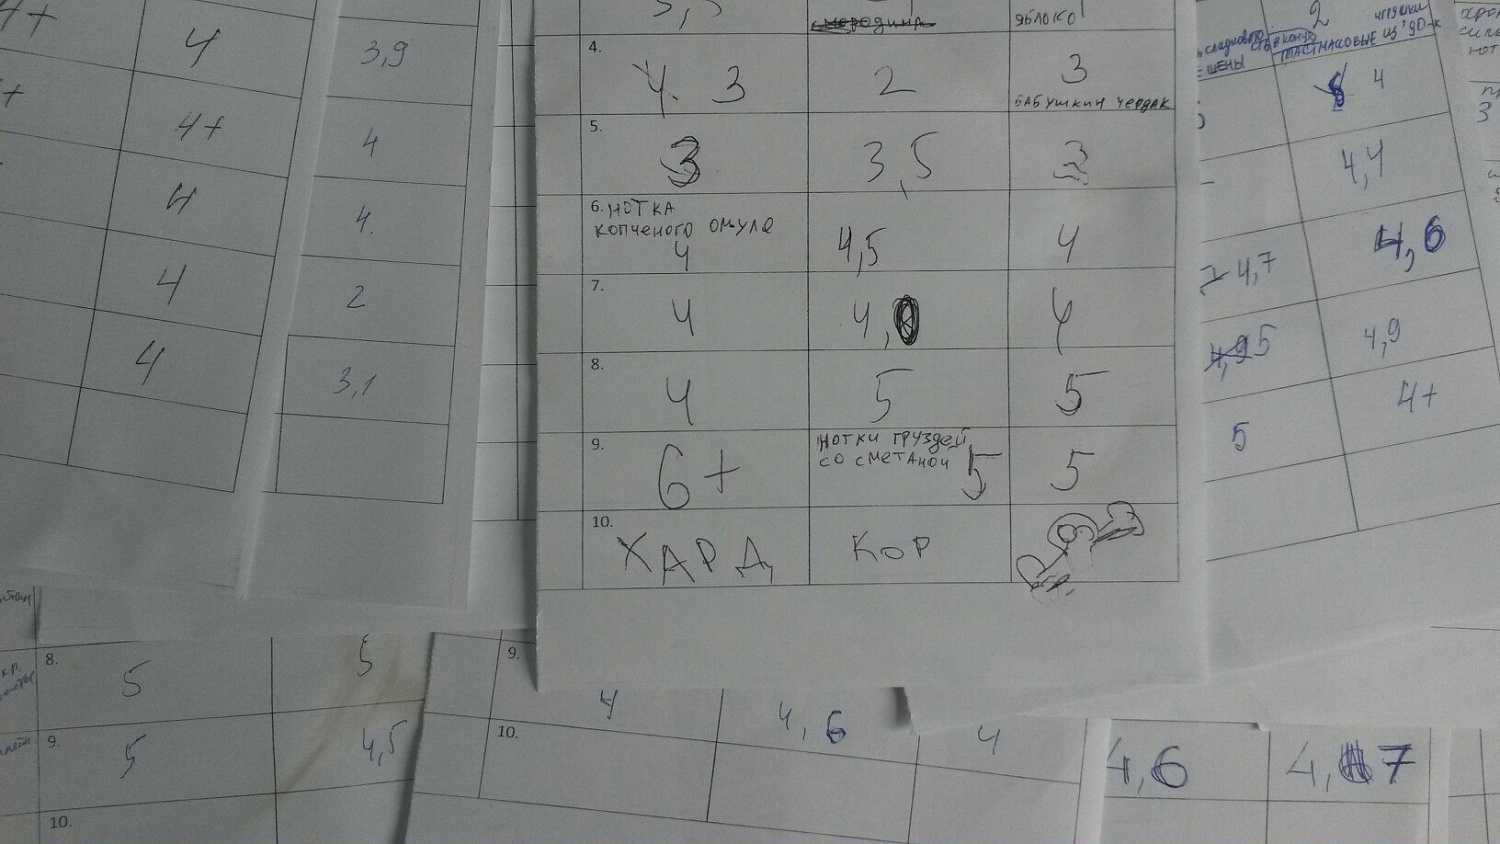 4+
4
3,9
4+
4
4
4.
4
2
4
3,1
ЯБЛОКО
4.
4. 3
2
3
БАБУШКИН ЧЕРДАК
5.
3
3,5
3
6. НОТКА
КОПЧЕНОГО ОМУЛЯ
4
4,5
4
7.
4
4,
4
8.
4
5
5
9.
6+
НОТКИ ГРУЗДЕЙ
СО СМЕТАНОЙ
5
5
10.
ХАРД
КОР
2
ПЛАСТМАСОВЫЕ ИЗ 90-Х
4
4,4
4,6
4,7
4,9
5
4+
5
8.
5
5
9.
5
4,5
10.
9.
4
4,6
4
10.
4,6
4,7